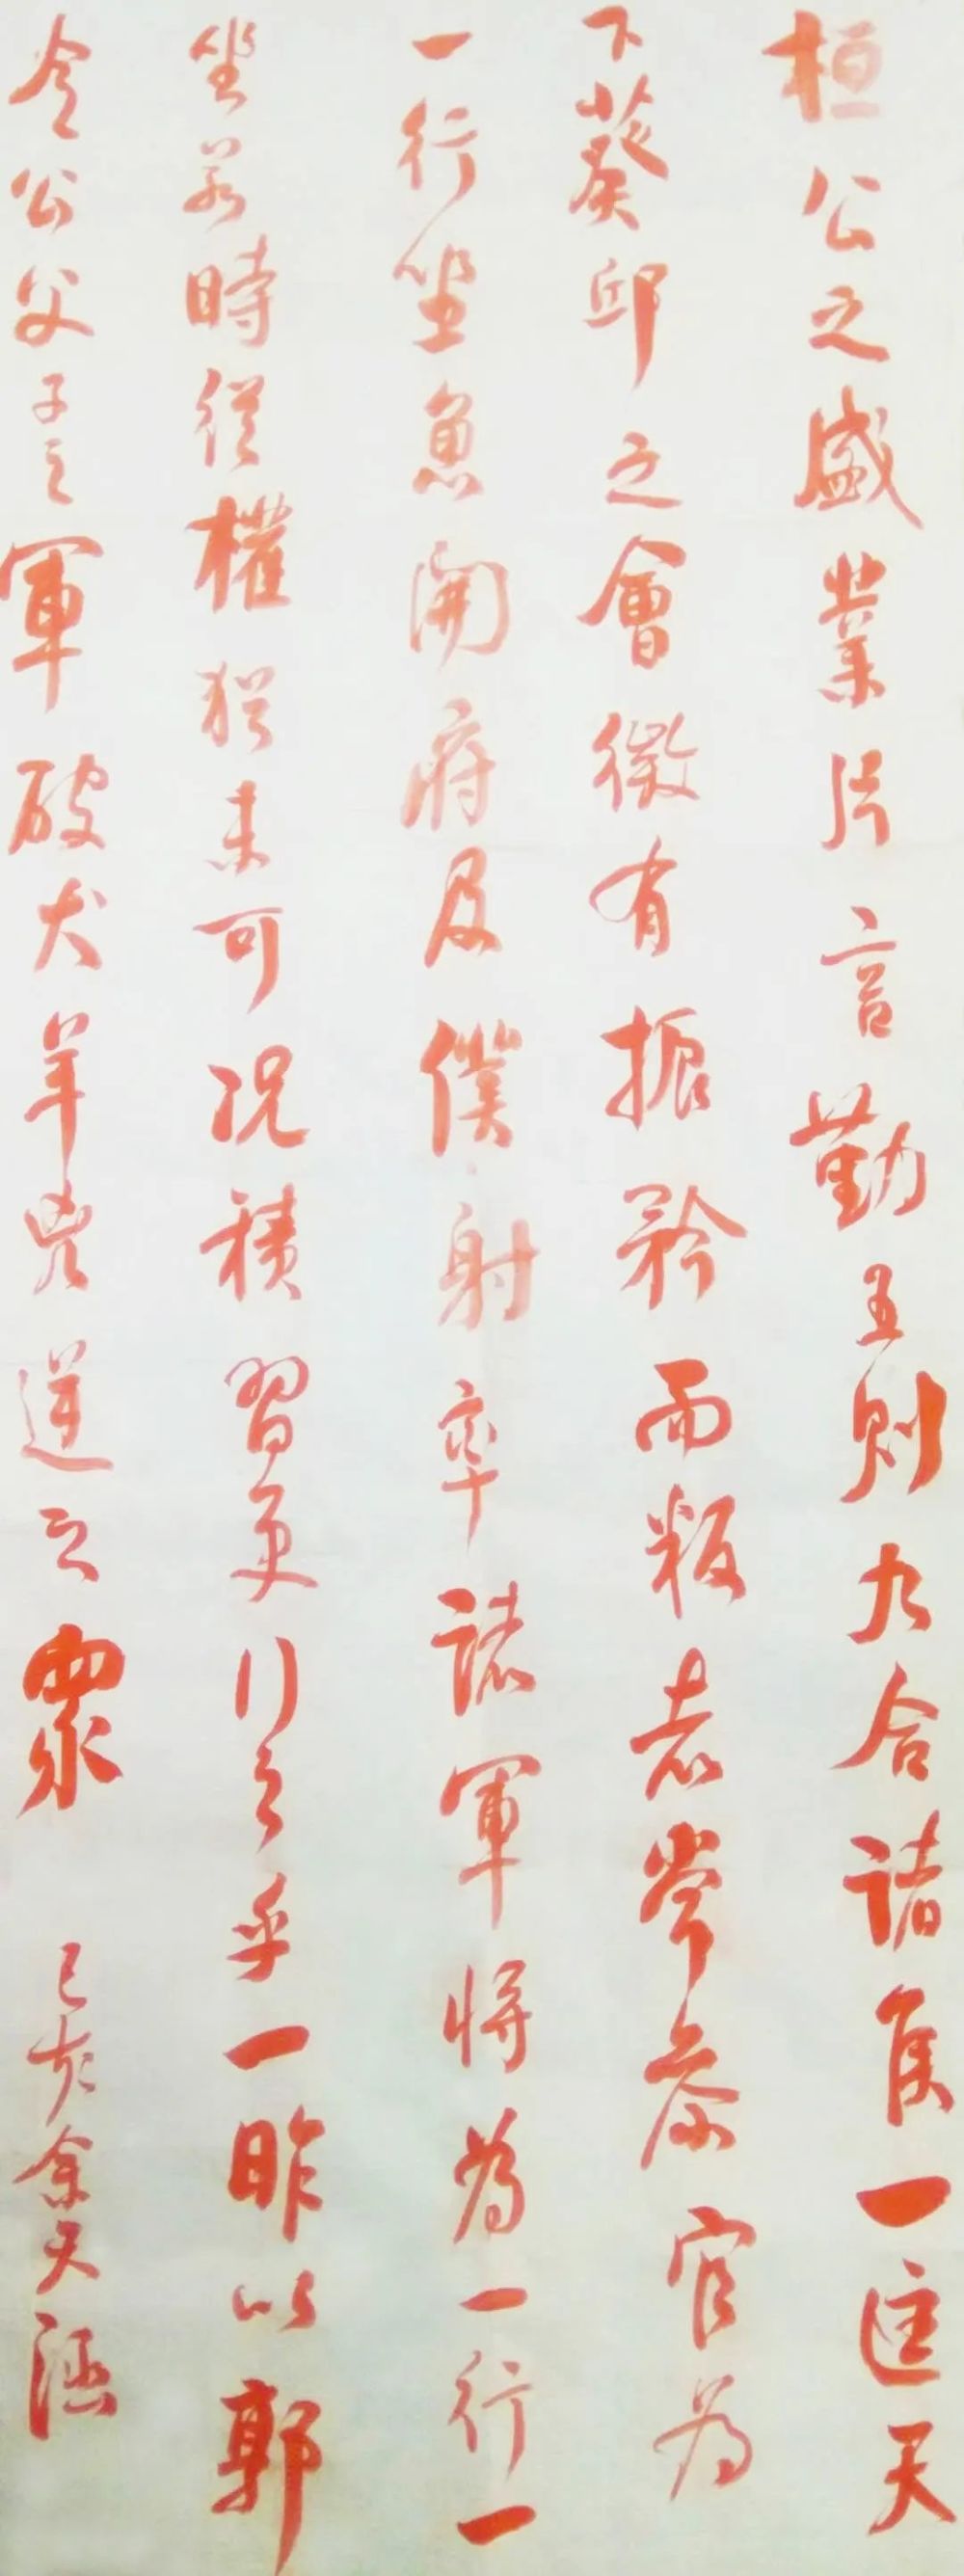 桓公之盛業片言勤王則九合諸侯一匡天
下葵邱之會微有振矜而叛者常叅官為
一行坐魚開府及僕射率諸軍將為一行一
坐若時從權猶未可况積習更行之乎一昨以郭
令公父子之軍破犬羊兇逆之衆
己亥余天涵